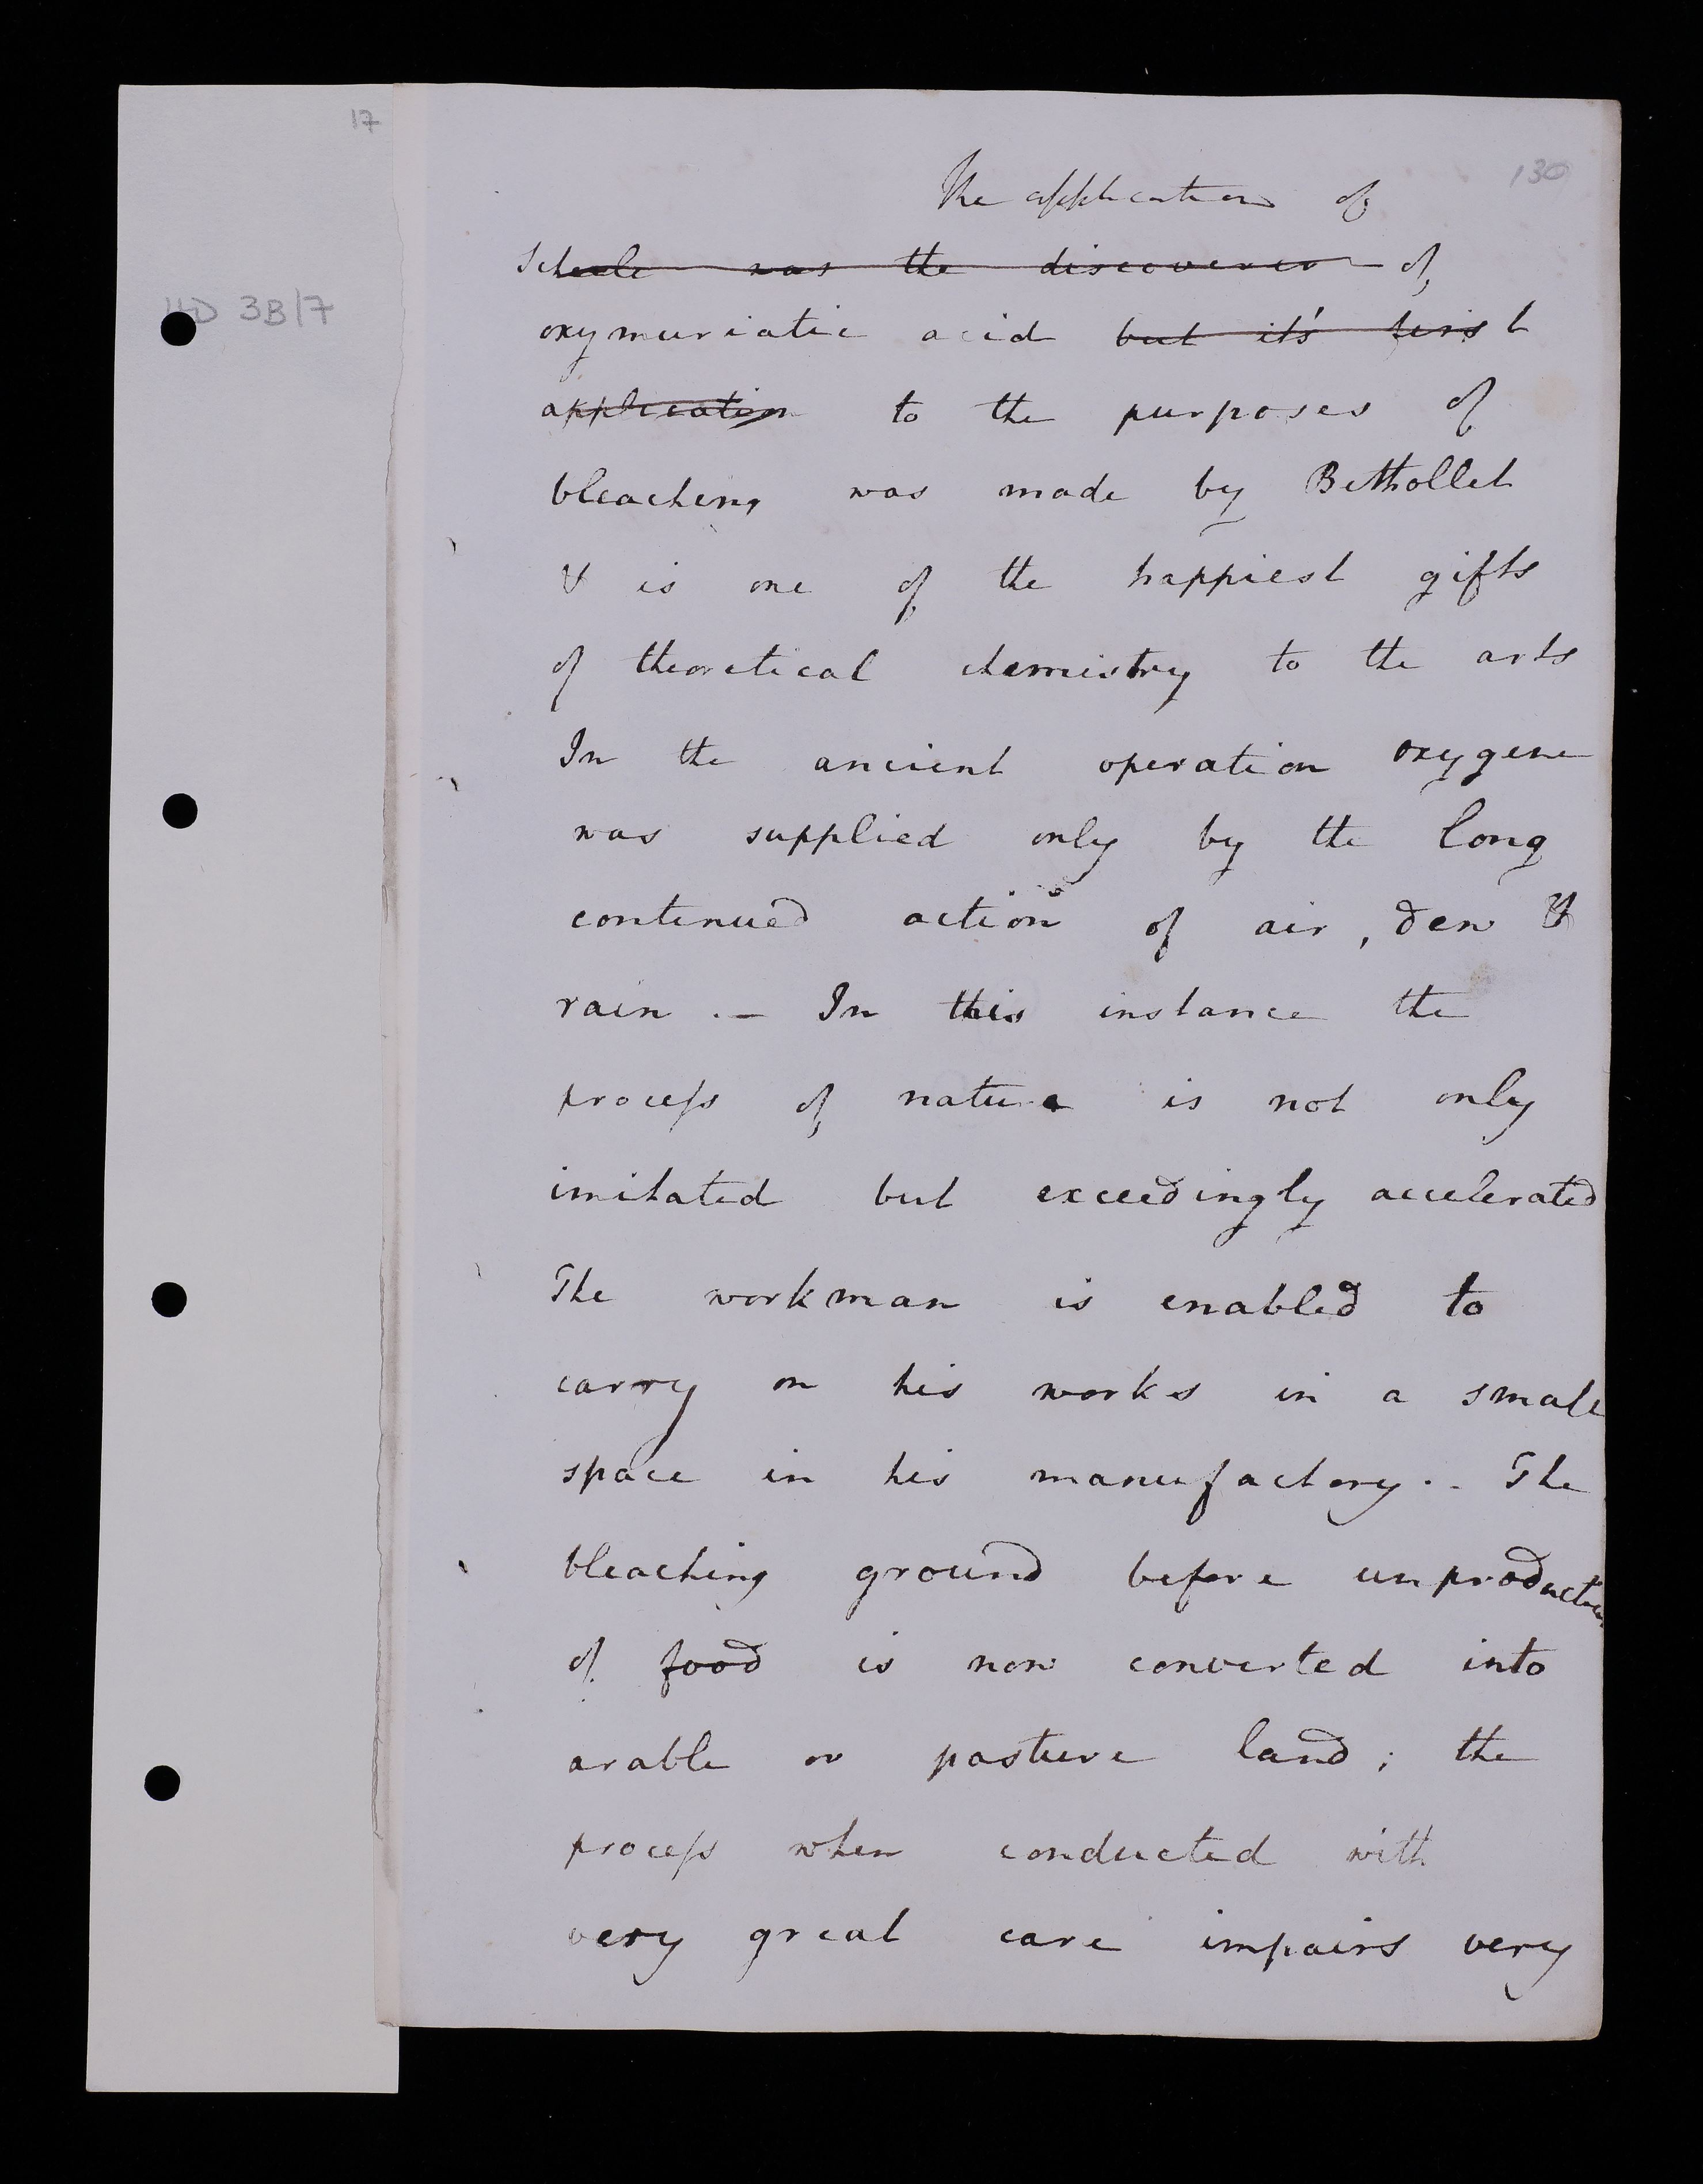 17
130
HD 3B/7
The application of
Scheele was the discoverer of
oxymuriatic acid but it's first
application to the purposes of
bleaching was made by Bethollet
& is one of the happiest gifts
of theoretical chemistry to the arts
In the ancient operation oxygene
was supplied only by the long
continued action of air, dew &
rain .— In this instance the
process of nature is not only
imitated but exceedingly accelerated
The workman is enabled to
carry on his works in a small
space in his manufactory.- The
bleaching ground before unproductive
of food is now converted into
arable or pasture land; the
process when conducted with
very great care impairs very